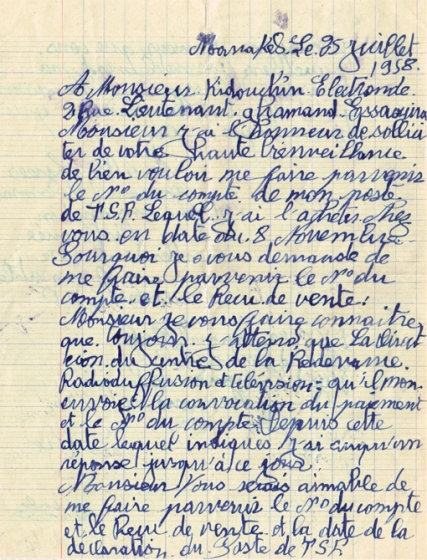 Le 25 juillet
1958.
A Monsieur Electron de
2 Rue Lieutenant Essaouira
Monsieur j'ai l'honneur de sollici
ter de votre haute bienveillance
de bien vouloir me faire parvenir
le N° du compte de mon poste
de T.S.F. Lequel j'ai l'acheter chez
vous en date du 8 Novembre
Pourquoi je vous demande de
me faire parvenir le N° du
compte et le Reçu de vente.
Monsieur je vous faire connaitre
que toujours j'attend que La Direct
cion du Centre de la Redevance
Radioduffusion et télévision qu'il mon
envoie la convocation du paiement
et le N° du compte Depuis cette
date lequel indiqués j'ai
réponse jusqu'à ce jour
Monsieur Vous serais aimable de
me faire parvenir le N° du compte
et le Reçu de vente et la date de la
déclaration du Poste de T.S.F.